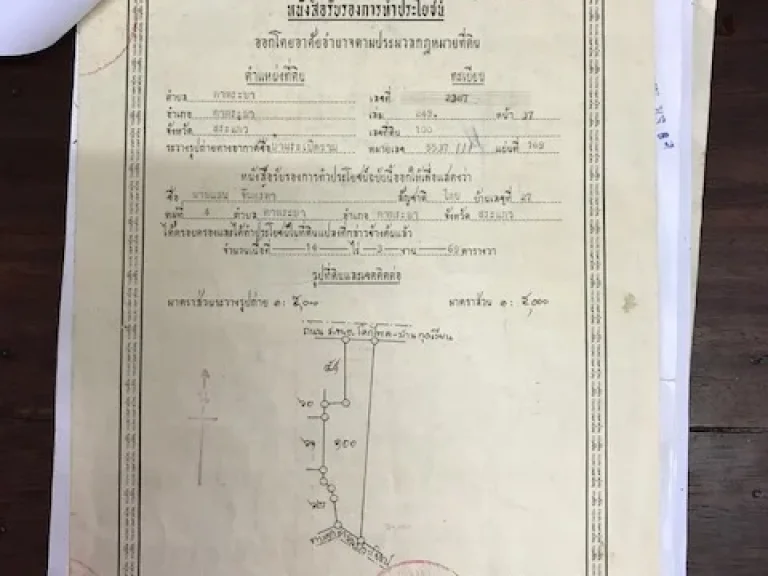 หนังสือรับรองการทำประโยชน์
ออกโดยอาศัยอำนาจตามประมวลกฎหมายที่ดิน
ตำแหน่งที่ดิน ทะเบียน
ตำบล ตาพระยา เลขที่ 2307
อำเภอ ตาพระยา เล่ม หน้า 37
จังหวัด สระแก้ว เลขที่ดิน 100
ระวางรูปถ่ายทางอากาศชื่อ หมายเลข 5537 แผ่นที่ 168
หนังสือรับรองการทำประโยชน์ฉบับนี้ออกให้เพื่อแสดงว่า
ชื่อ สัญชาติ ไทย บ้านเลขที่ 27
หมู่ที่ 4 ตำบล ตาพระยา อำเภอ ตาพระยา จังหวัด สระแก้ว
ได้ครอบครองและได้ทำประโยชน์ในที่ดินแปลงที่กล่าวข้างต้นแล้ว
จำนวนเนื้อที่ 14 ไร่ 3 งาน 69 ตารางวา
รูปที่ดินและเขตติดต่อ
มาตราส่วนระวางรูปถ่าย ๑ : ๕,๐๐๐ มาตราส่วน ๑ : ๕,๐๐๐
๕๘
๖๐
๖๑ ๑๐๐
๖๒